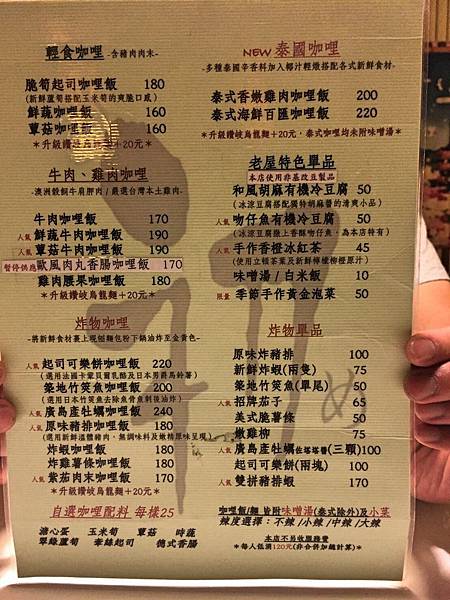 輕食咖哩 -含豬肉肉末-
脆筍起司咖哩飯 180
(新鮮蘆筍搭配玉米筍的爽脆口感)
鮮蔬咖哩飯 160
蕈菇咖哩飯 160
*升級讚岐烏龍麵+20元*
牛肉、雞肉咖哩
-澳洲穀飼牛肩胛肉/嚴選台灣本土雞肉-
牛肉咖哩飯 170
人氣 鮮蔬牛肉咖哩飯 190
人氣 蕈菇牛肉咖哩飯 190
暫停供應 歐風肉丸香腸咖哩飯 170
雞肉腰果咖哩飯 180
*升級讚岐烏龍麵+20元*
炸物咖哩
-將新鮮食材裹上現刨麵包粉下鍋油炸至金黃色-
人氣 起司可樂餅咖哩飯 220
(選用法國卡蒙貝爾乳酪及日本男爵馬鈴薯)
築地竹筴魚咖哩飯 200
(選用日本竹筴魚去除魚骨魚刺後油炸)
人氣 廣島產牡蠣咖哩飯 240
人氣 原味豬排咖哩飯 180
(選用新鮮溫體豬肉,無調味料及嫩精原味呈現)
炸蝦咖哩飯 180
炸雞薯條咖哩飯 180
人氣 紫茄肉末咖哩飯 170
*升級讚岐烏龍麵+20元*
自選咖哩配料 每樣25
溏心蛋 玉米筍 蕈菇 時蔬
翠綠蘆筍 牽絲起司 德式香腸
NEW 泰國咖哩
-多種泰國辛香料加入椰汁輕燉搭配各式新鮮食材-
泰式香嫩雞肉咖哩飯 200
泰式海鮮百匯咖哩飯 220
*升級讚岐烏龍麵+20元,泰式咖哩均未附味噌湯*
老屋特色單品
本店使用非基改豆製品
和風胡麻有機冷豆腐 50
(冰涼豆腐搭配獨特胡麻醬的清爽小品)
人氣 吻仔魚有機冷豆腐 50
(冰涼豆腐撒上香酥吻仔魚,為本店特有)
人氣 手作香橙冰紅茶 45
(使用立頓茶葉及新鮮檸檬柳橙原汁)
味噌湯/白米飯 10
限量 季節手作黃金泡菜 50
炸物單品
原味炸豬排 100
新鮮炸蝦(兩隻) 75
築地竹筴魚(單尾) 50
人氣 招牌茄子 65
美式脆薯條 50
嫩雞柳 75
人氣 廣島產牡蠣佐塔塔醬(三顆)100
起司可樂餅(兩塊) 100
人氣 雙拼豬排蝦 170
咖哩飯/麵 皆附味噌湯(泰式除外)及小菜
辣度選擇:不辣/小辣/中辣/大辣
本店不另收服務費
*每人低消120元(非合併加總計算)*